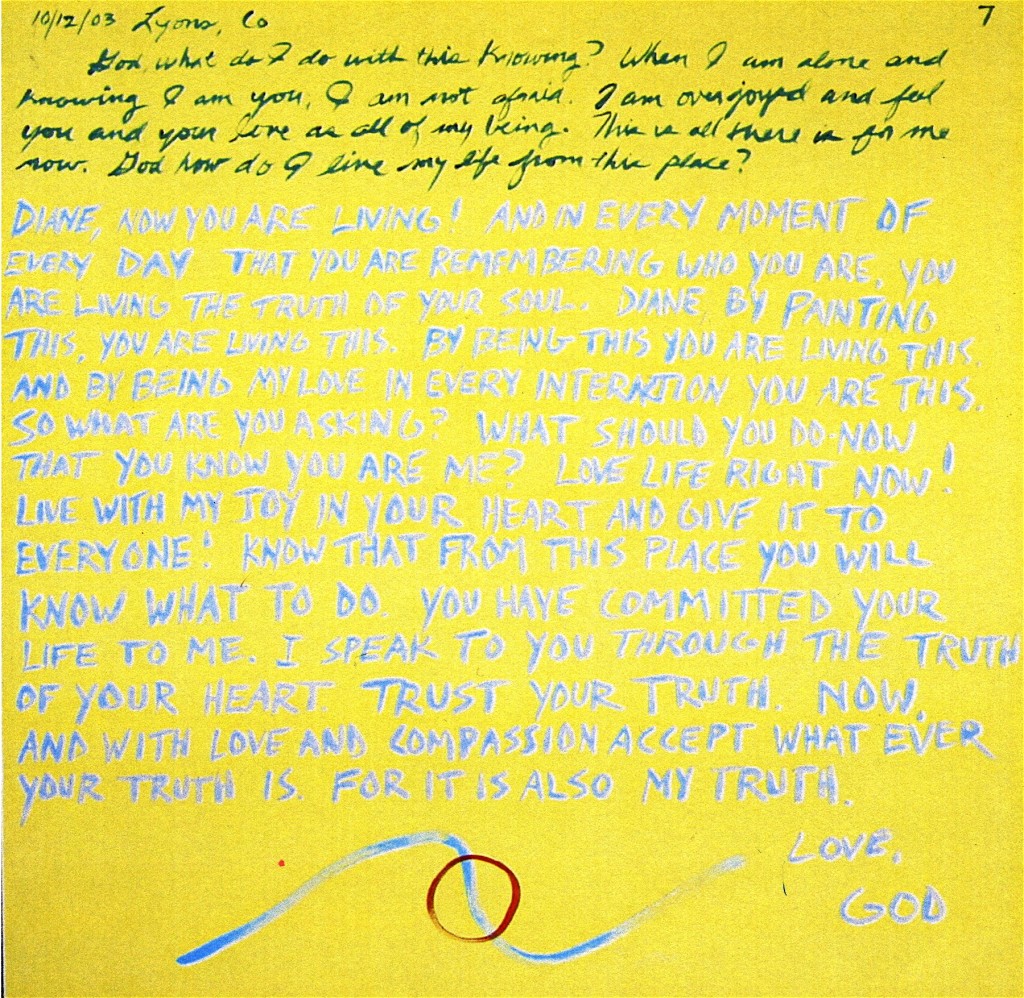 10/12/03 Lyons, Co 7
God, what do I do with this Knowing? When I am alone and
knowing I am you, I am not afraid. I am overjoyed and feel
you and your love as all of my being. This is all there is for me
now. God how do I live my life from this place?
DIANE, NOW YOU ARE LIVING! AND IN EVERY MOMENT OF
EVERY DAY THAT YOU ARE REMEMBERING WHO YOU ARE, YOU
ARE LIVING THE TRUTH OF YOUR SOUL. DIANE BY PAINTING
THIS, YOU ARE LIVING THIS. BY BEING THIS YOU ARE LIVING THIS.
AND BY BEING MY LOVE IN EVERY INTERATION YOU ARE THIS.
SO WHAT ARE YOU ASKING? WHAT SHOULD YOU DO-NOW
THAT YOU KNOW YOU ARE ME? LOVE LIFE RIGHT NOW!
LIVE WITH MY JOY IN YOUR HEART AND GIVE IT TO
EVERYONE! KNOW THAT FROM THIS PLACE YOU WILL
KNOW WHAT TO DO. YOU HAVE COMMITTED YOUR
LIFE TO ME. I SPEAK TO YOU THROUGH THE TRUTH
OF YOUR HEART. TRUST YOUR TRUTH. NOW,
AND WITH LOVE AND COMPASSION ACCEPT WHAT EVER
YOUR TRUTH IS. FOR IT IS ALSO MY TRUTH.
LOVE,
GOD